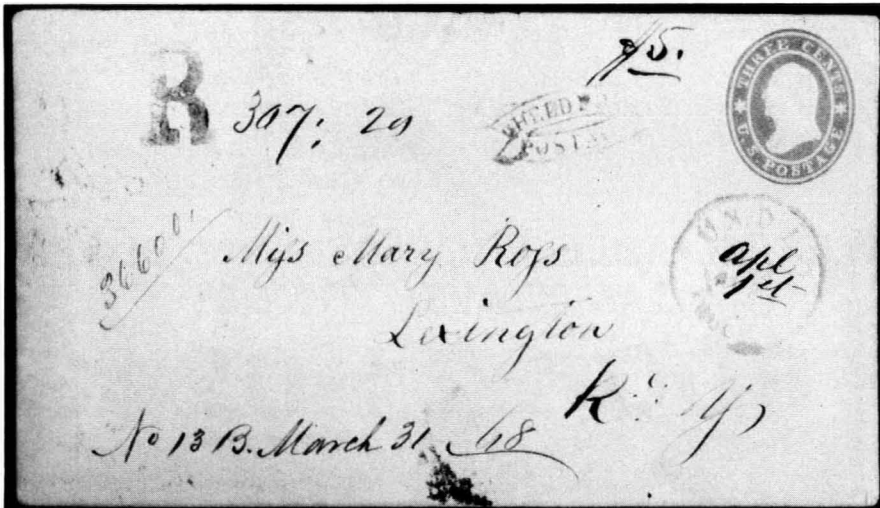 R
307; 29
5.
THREE CENTS
U.S. POSTAGE
POSTA
36600
Miss Mary Ross
Lexington
Ky
apl
1st
No 13 B. March 31 /48